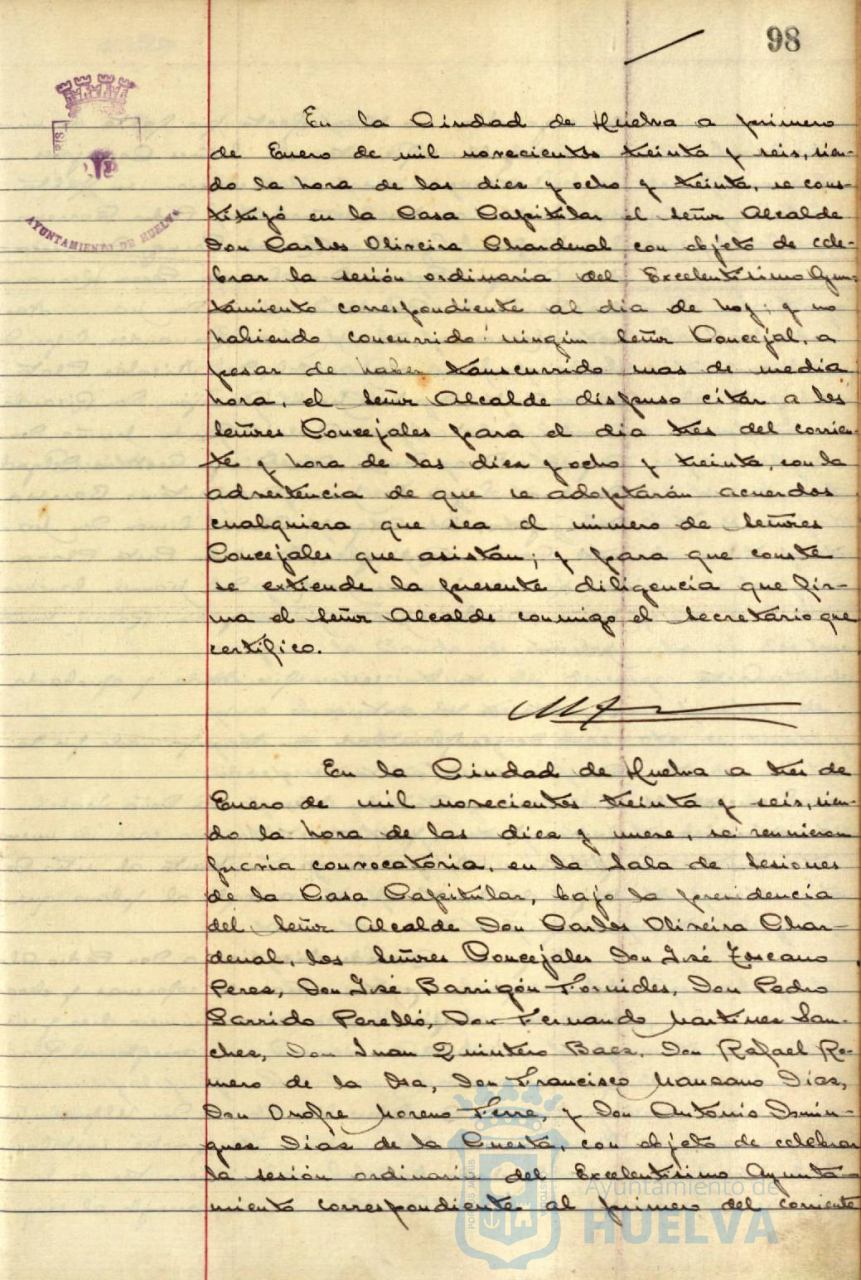 98
AYUNTAMIENTO DE HUELVA
En la Ciudad de Huelva a primero
de Enero de mil novecientos treinta y seis, sien-
do la hora de las diez y ocho y treinta, se cons-
tituyó en la Casa Capitular el Señor Alcalde
Don Carlos Oliveira Chardenal con objeto de cele-
brar la sesión ordinaria del Excelentísimo Ayun-
tamiento correspondiente al dia de hoy; y no
habiendo concurrido ningún Señor Concejal, a
pesar de haber transcurrido mas de media
hora, el Señor Alcalde dispuso citar a los
Señores Concejales para el dia tres del corrien-
te y hora de las diez y ocho y treinta, con la
advertencia de que se adoptarán acuerdos
cualquiera que sea el número de Señores
Concejales que asistan; y para que conste
se extiende la presente diligencia que fir-
ma el Señor Alcalde conmigo el Secretario que
certifico.
En la Ciudad de Huelva a tres de
Enero de mil novecientos treinta y seis, sien-
do la hora de las diez y nueve, se reunieron
previa convocatoria, en la Sala de Sesiones
de la Casa Capitular, bajo la presidencia
del Señor Alcalde Don Carlos Oliveira Char-
denal, los Señores Concejales Don José Toscano
Perez, Don José Barrigón Fornides, Don Pedro
Garrido Perelló, Don Fernando Martinez San-
chez, Don Juan Quintero Baez, Don Rafael Ro-
mero de la Osa, Don Francisco Manzano Diaz,
Don Onofre Moreno Ferre, y Don Antonio Domin-
guez Diaz de la Cuesta, con objeto de celebrar
la sesión ordinaria del Excelentísimo Ayunta-
miento correspondiente al primero del corriente
Ayuntamiento de
HUELVA